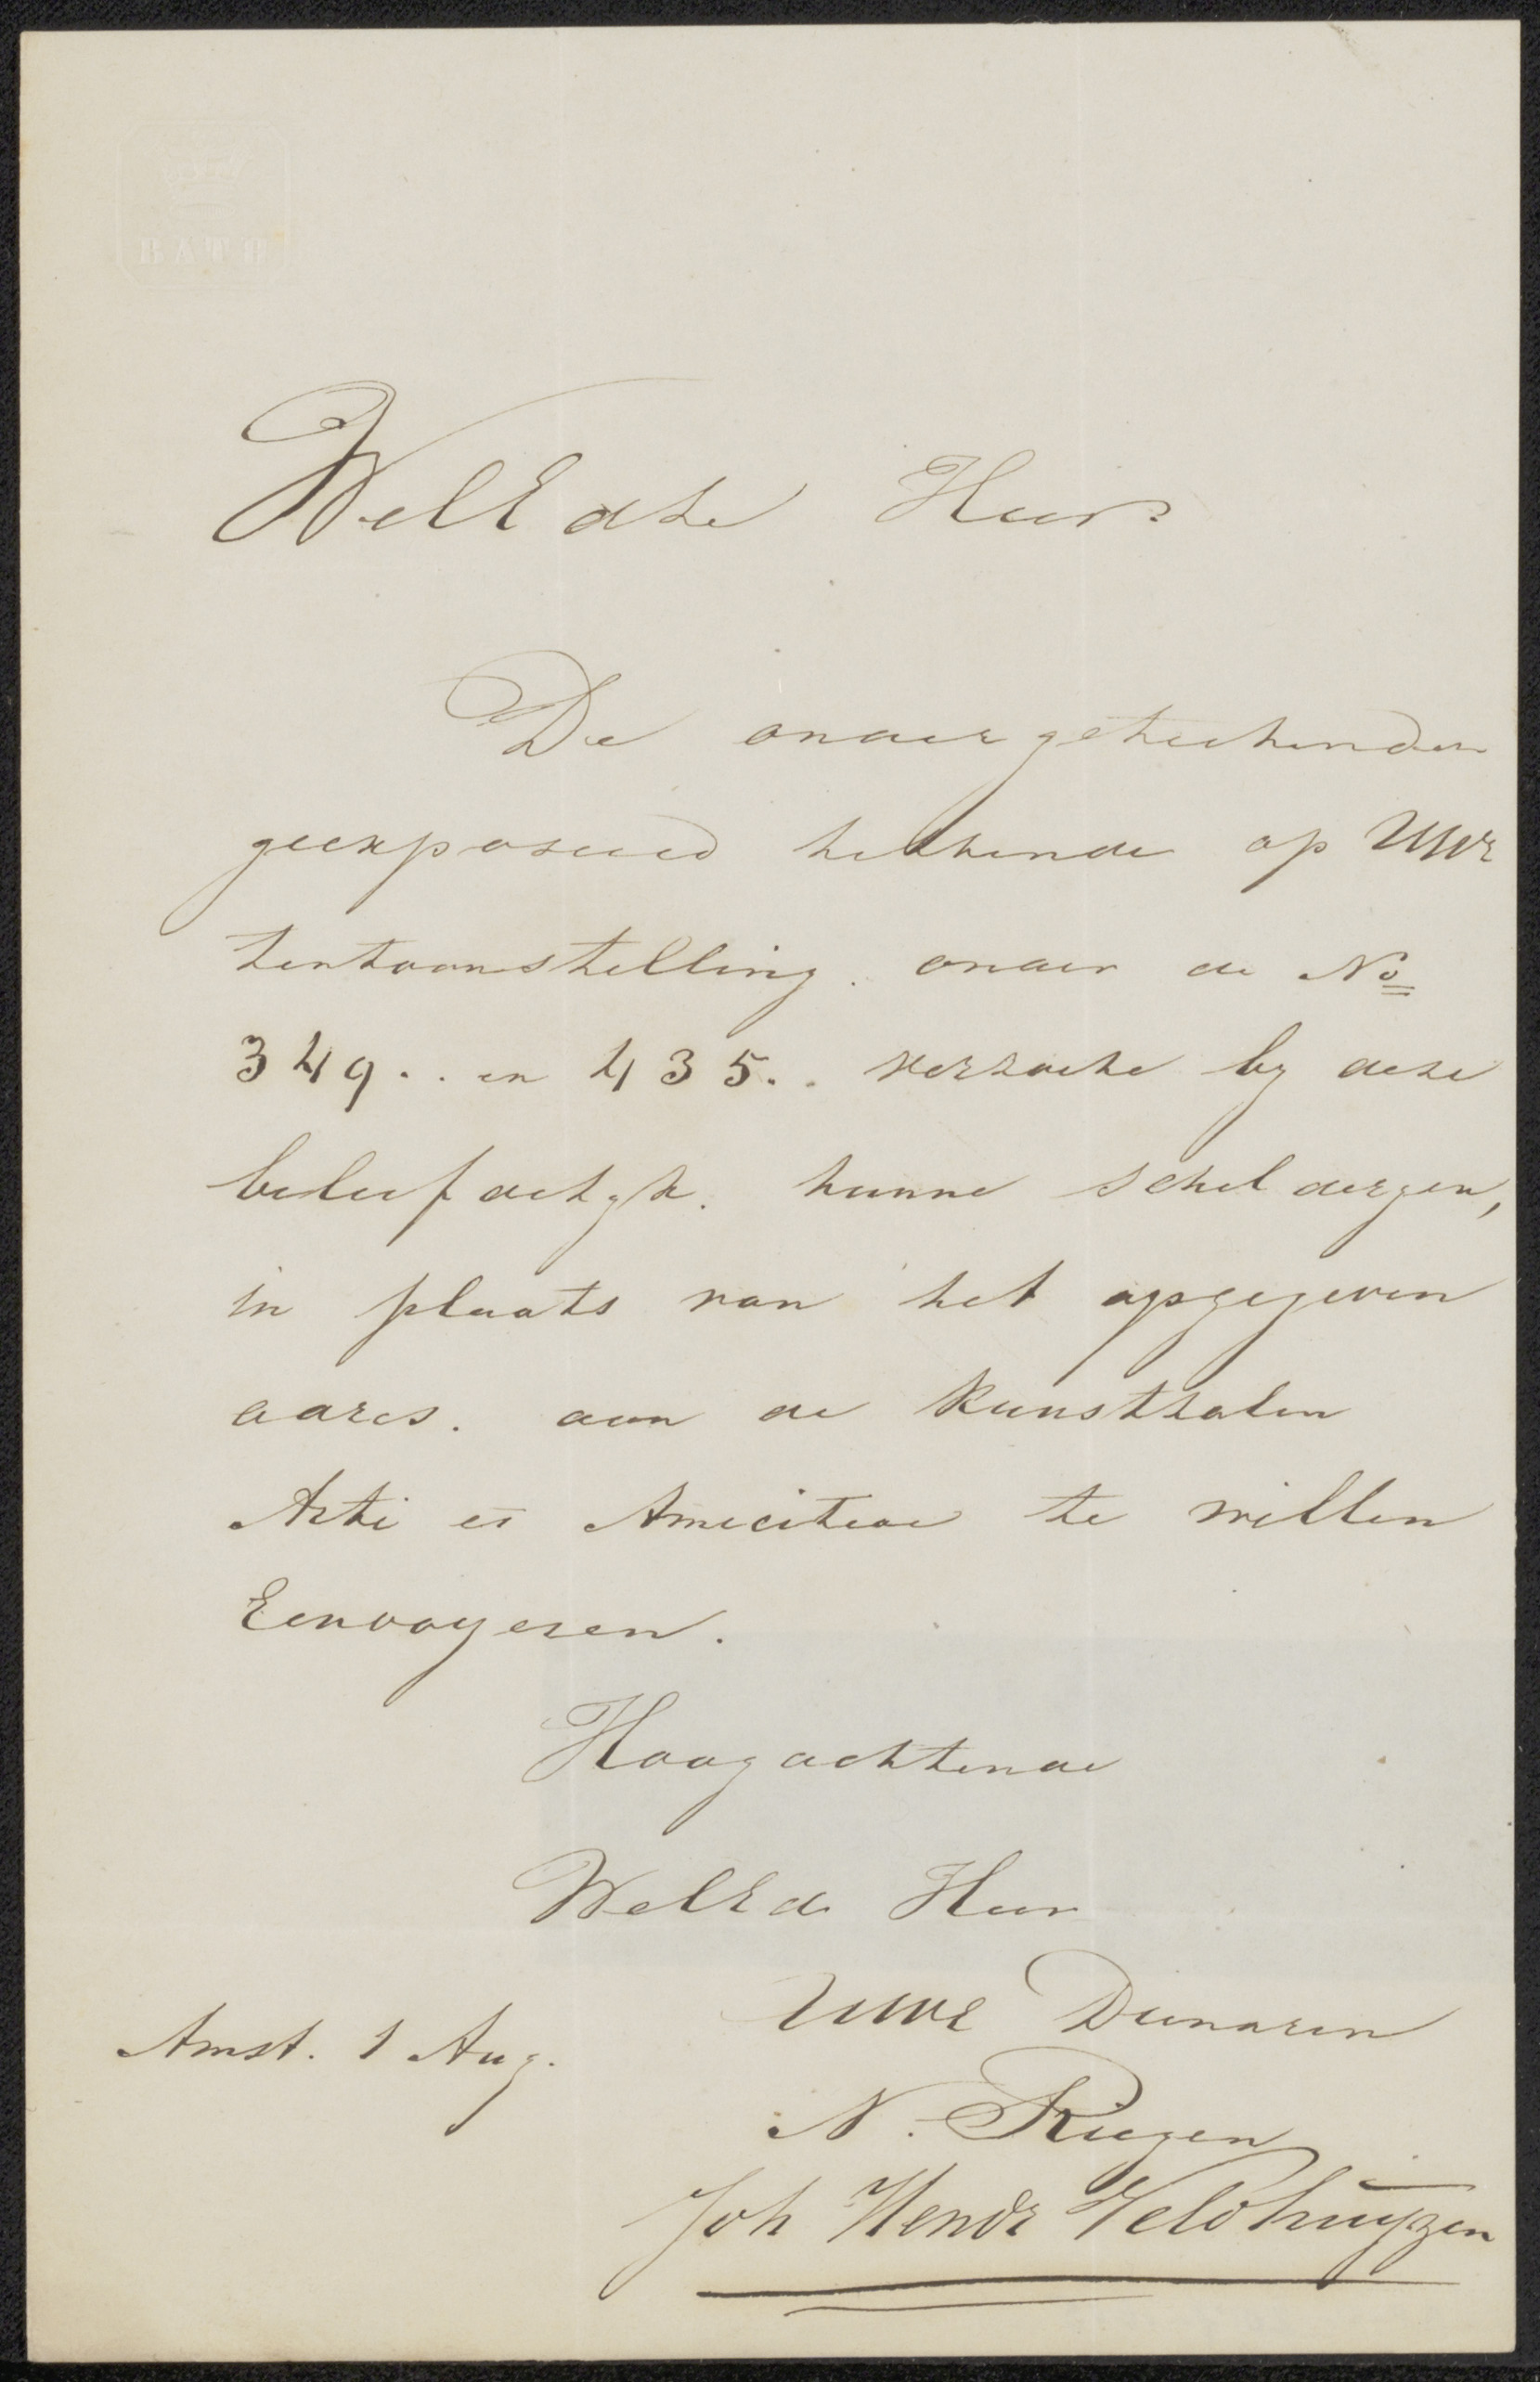 BATH
WelEdle Heer
De ondergeteekenden
geexposeerd hebbende op UWE
tentoonstelling. onder de No
349.. en 435.. verzoeke by deze
beleefdelyk. hunne schilderyen,
in plaats van het opgegeven
adres. aan de Kunstzalen
Arti et Amicitiae te willen
Envoyeren.
Hoogachtende
WelEd. Heer
UWE Dienaren
Amst. 1 Aug.
N. Riegen
Joh Hendr Veldhuijzen